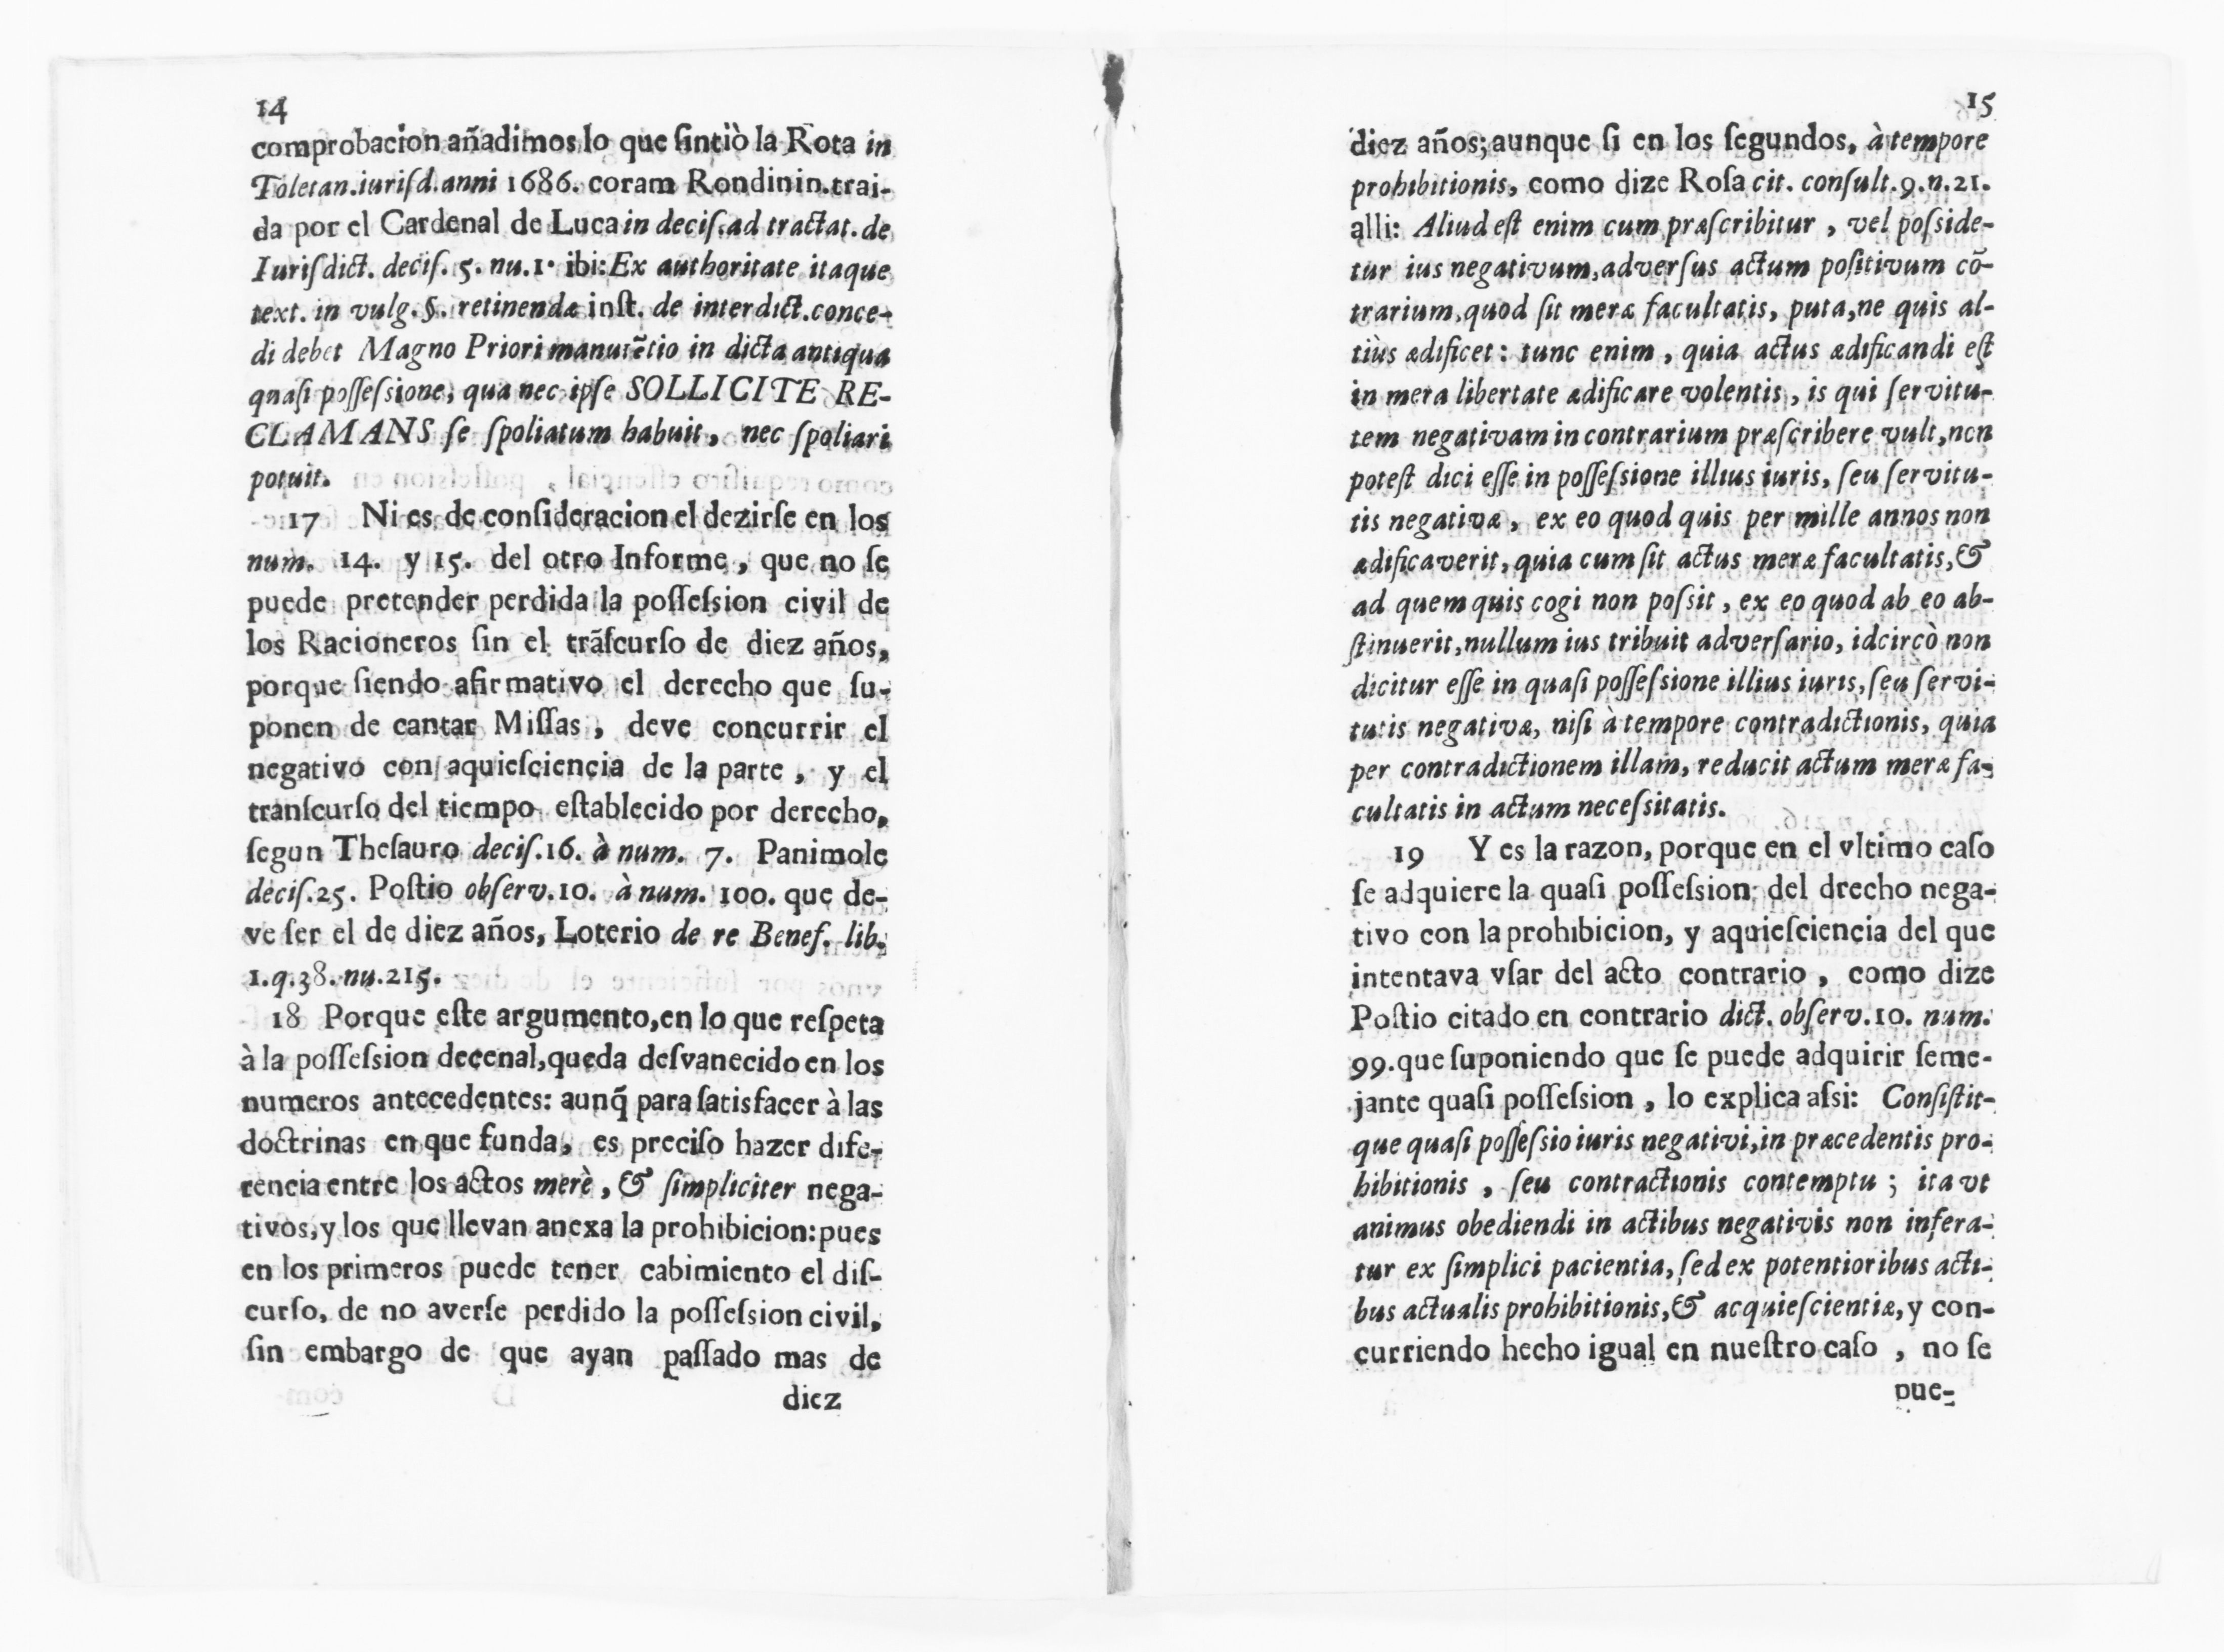 14
comprobacion añadimos lo que ſintiò la Rota in
Toletan.iuriſd.anni 1686. coram Rondinin.trai-
da por el Cardenal de Luca in deciſ.ad tractat.de
Iuriſdict. deciſ. 5. nu.1. ibi:Ex authoritate itaque
text. in vulg.§. retinendæ inſt. de interdict.conce-
di debet Magno Priori manutẽtio in dicta antiqua
quaſi poſſeſsione, qua nec ipſe SOLLICITE RE-
CLAMANS ſe ſpoliatum habuit, nec ſpoliari
potuit.
17 Ni es de conſideracion el dezirſe en los
num. 14. y 15. del otro Informe, que no ſe
puede pretender perdida la poſſeſsion civil de
los Racioneros ſin el trãſcurſo de diez años,
porque ſiendo afirmativo el derecho que ſu-
ponen de cantar Miſſas, deve concurrir el
negativo con aquieſciencia de la parte, y el
tranſcurſo del tiempo eſtablecido por derecho,
ſegun Theſauro deciſ.16. à num. 7. Panimole
deciſ.25. Poſtio obſerv.10. à num. 100. que de-
ve ſer el de diez años, Loterio de re Beneſ. lib.
1.q.38.nu.215.
18 Porque eſte argumento,en lo que reſpeta
à la poſſeſsion decenal,queda deſvanecido en los
numeros antecedentes: aunq̃ para ſatisfacer à las
doctrinas en que funda, es preciſo hazer dife-
rencia entre los actos merè, & ſimpliciter nega-
tivos,y los que llevan anexa la prohibicion:pues
en los primeros puede tener cabimiento el diſ-
curſo, de no averſe perdido la poſſeſsion civil,
ſin embargo de que ayan paſſado mas de
diez
15
diez años;aunque ſi en los ſegundos, à tempore
prohibitionis, como dize Roſa cit. conſult.9.n.21.
alli: Aliud eſt enim cum præſcribitur, vel poſside-
tur ius negativum,adverſus actum poſitivum cõ-
trarium,quod ſit meræ facultatis, puta,ne quis al-
tiùs ædificet: tunc enim, quia actus ædificandi eſt
in mera libertate ædificare volentis, is qui ſervitu-
tem negativam in contrarium præſcribere vult,non
poteſt dici eſſe in poſſeſsione illius iuris, ſeu ſervitu-
tis negativæ, ex eo quod quis per mille annos non
ædificaverit, quia cum ſit actus meræ facultatis,&
ad quem quis cogi non poſsit, ex eo quod ab eo ab-
ſtinuerit,nullum ius tribuit adverſario, idcircò non
dicitur eſſe in quaſi poſſeſsione illius iuris,ſeu ſervi-
tutis negativæ, niſi à tempore contradictionis, quia
per contradictionem illam, reducit actum meræ fa-
cultatis in actum neceſsitatis.
19 Y es la razon, porque en el vltimo caſo
ſe adquiere la quaſi poſſeſsion del drecho nega-
tivo con la prohibicion, y aquieſciencia del que
intentava vſar del acto contrario, como dize
Poſtio citado en contrario dict. obſerv.10. num.
99.que ſuponiendo que ſe puede adquirir ſeme-
jante quaſi poſſeſsion, lo explica aſsi: Conſiſtit-
que quaſi poſſeſsio iuris negativi,in præcedentis pro-
hibitionis, ſeu contractionis contemptu; ita vt
animus obediendi in actibus negativis non infera-
tur ex ſimplici pacientia, ſed ex potentioribus acti-
bus actualis prohibitionis,& acquieſcientiæ, y con-
curriendo hecho igual en nueſtro caſo, no ſe
pue-